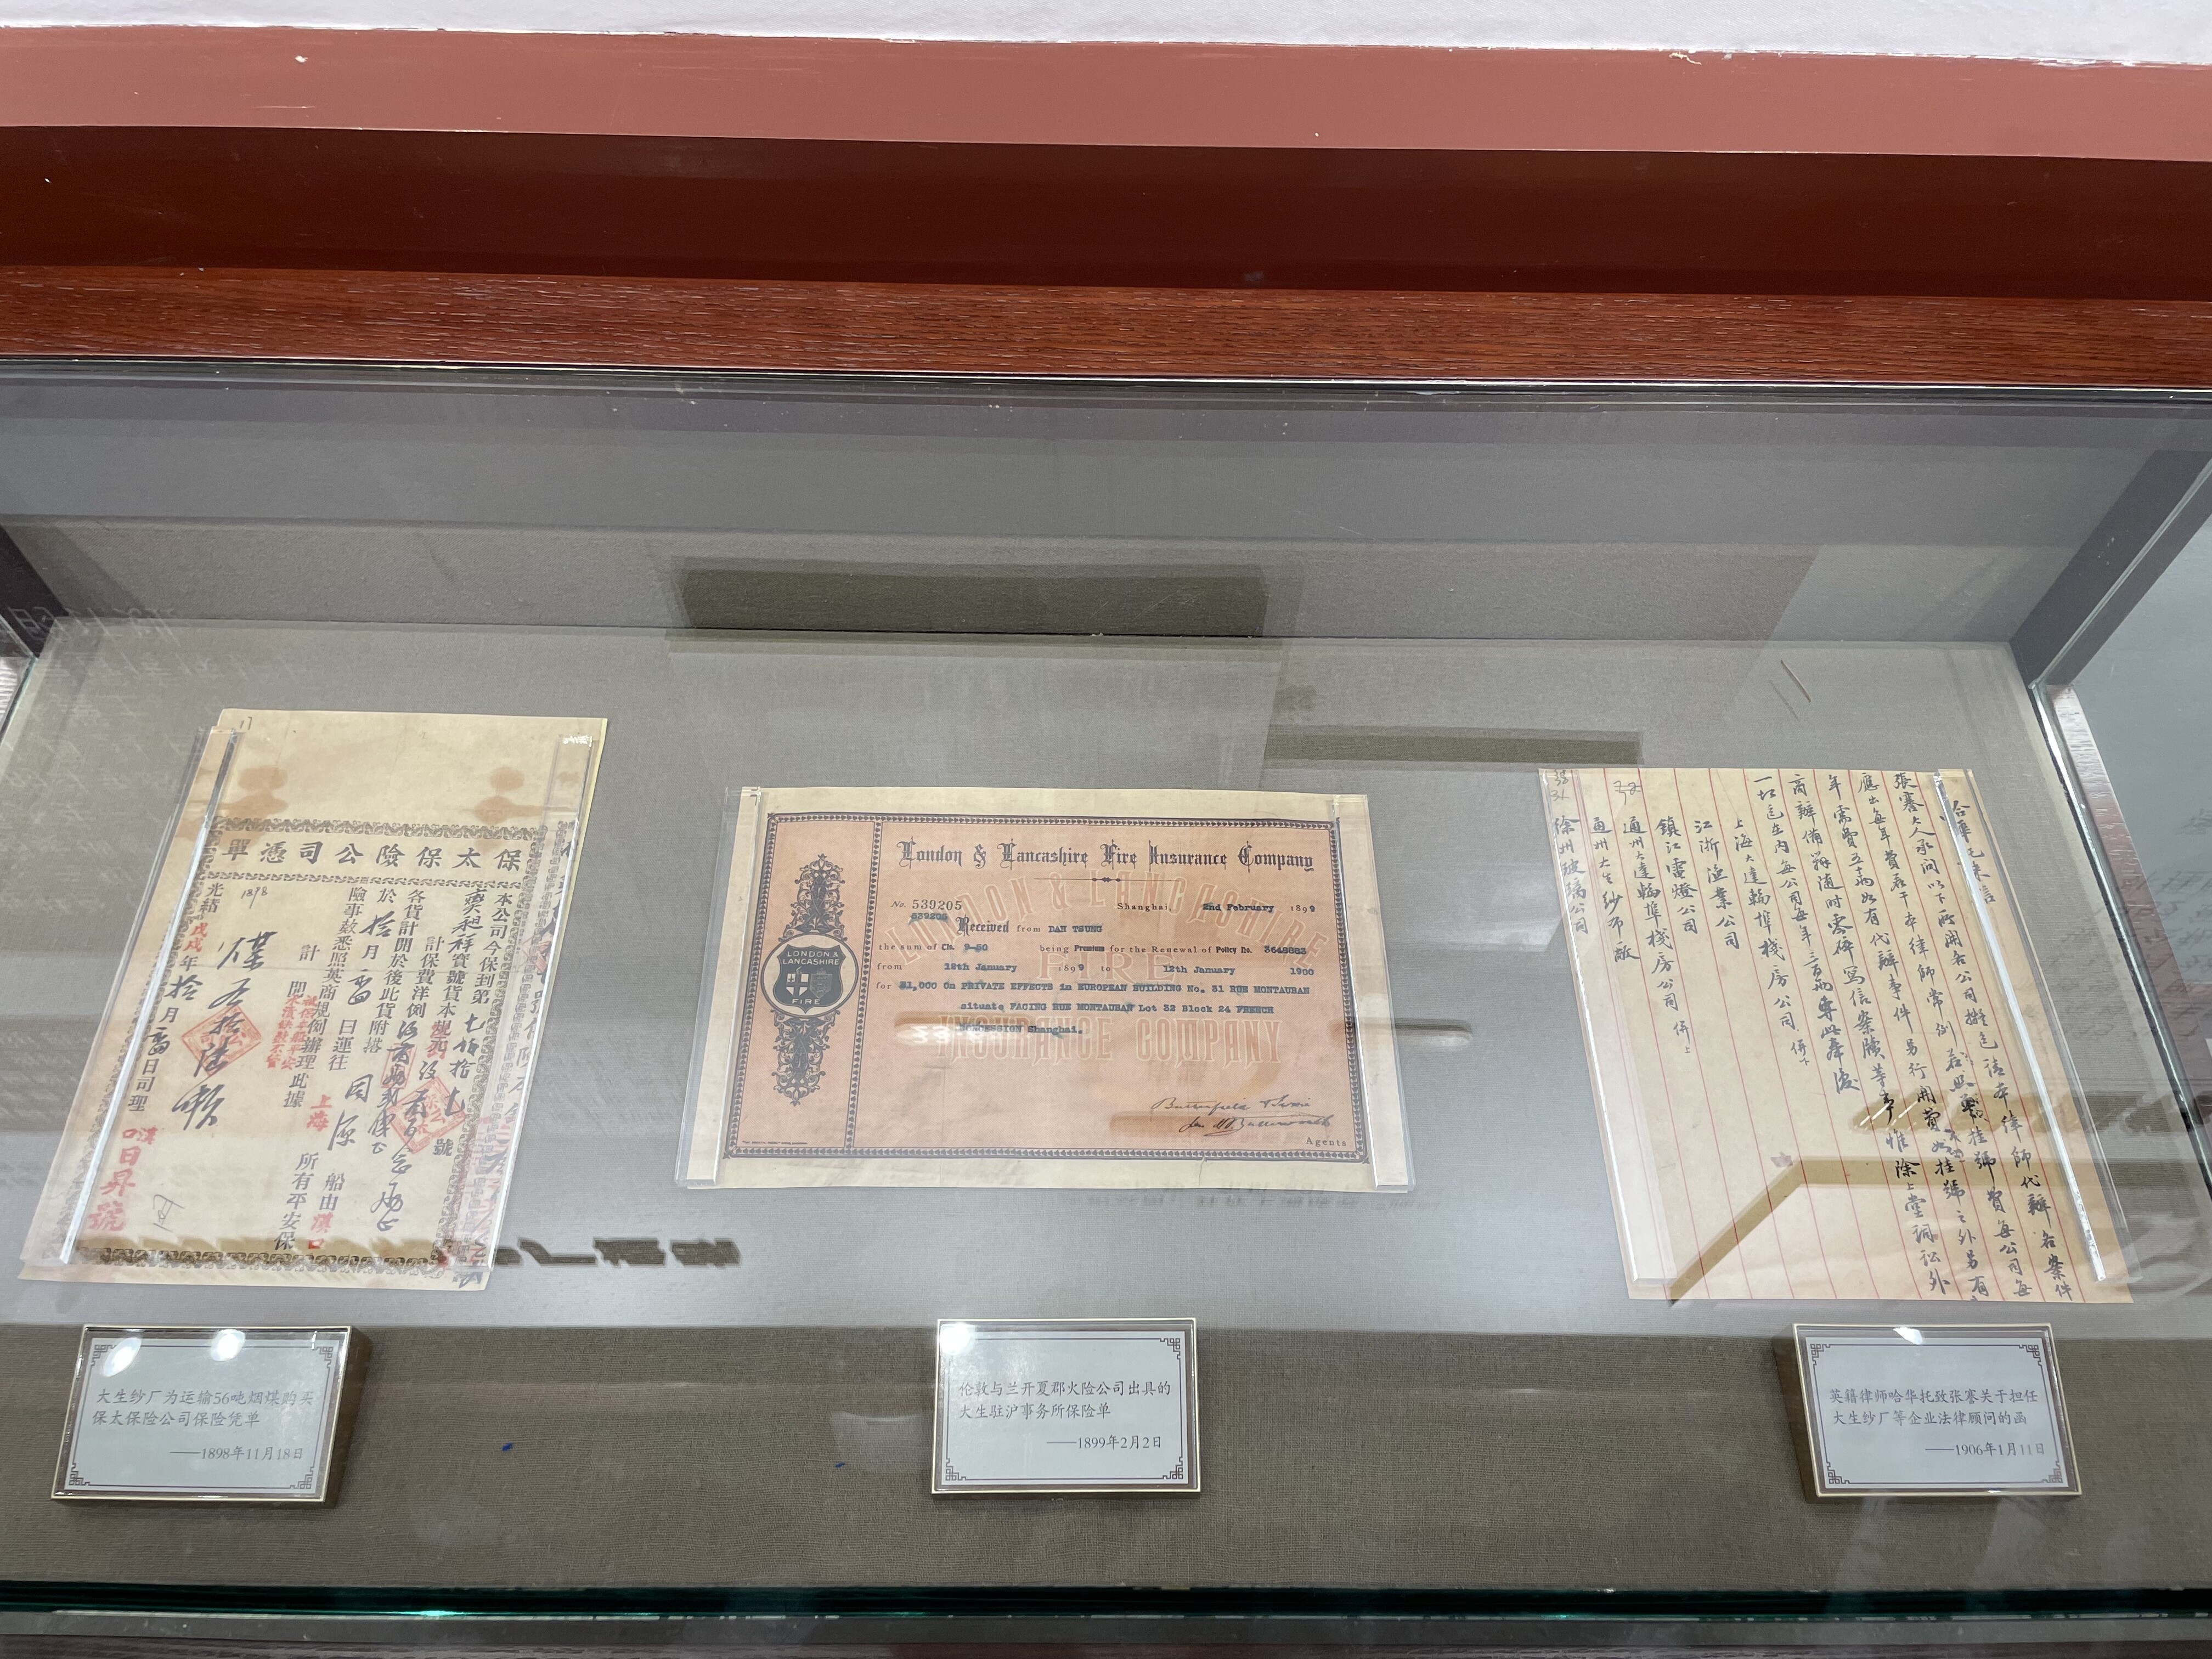 保太保險公司憑單
本公司今保到第七佰拾七號
寶號貨本規元
計保費洋例
各貨計開於後此貨附搭
於拾月 日運往
險事數悉照英商規例辦理此據
上海
船由漢口
所有平安保
計開
煤 五拾陆
1898
光緒戊戌年拾月 日司理
日昇號
London & Lancashire Fire Insurance Company
LONDON & LANCASHIRE
FIRE
INSURANCE COMPANY
LONDON &
LANCASHIRE
FIRE
No. 539205 Shanghai, 2nd February 1899
539205
Received from DAH TSUNG
the sum of 9-50 being Premium for the Renewal of Policy No. 3648883
from 12th January 1899 to 12th January 1900
for $1,000 On PRIVATE EFFECTS in EUROPEAN BUILDING No. 31 RUE MONTAUBAN
situate FACING RUE MONTAUBAN Lot 32 Block 24 FRENCH
CONCESSION Shanghai.
Butterfield & Swire
Agents
哈華托来信
張謇大人承问以下所開各公司擬邑請本律師代辦各案件
應出每年費若干本律師常例 挂號費每公司每
年需費五十两如有代辦事件另行開費 挂號之外另有
商辦備辦随时零碎寫信案牘等事惟除上堂詞訟外
一切包在内每公司每年三百两専此奉復
上海大達輪埠棧房公司 併下
江浙漁業公司
鎮江電燈公司
通州大達輪埠棧房公司 併上
通州大生紗布廠
徐州玻璃公司
大生纱厂为运输56吨烟煤购买
保太保险公司保险凭单
——1898年11月18日
伦敦与兰开夏郡火险公司出具的
大生驻沪事务所保险单
——1899年2月2日
英籍律师哈华托致张謇关于担任
大生纱厂等企业法律顾问的函
——1906年1月11日